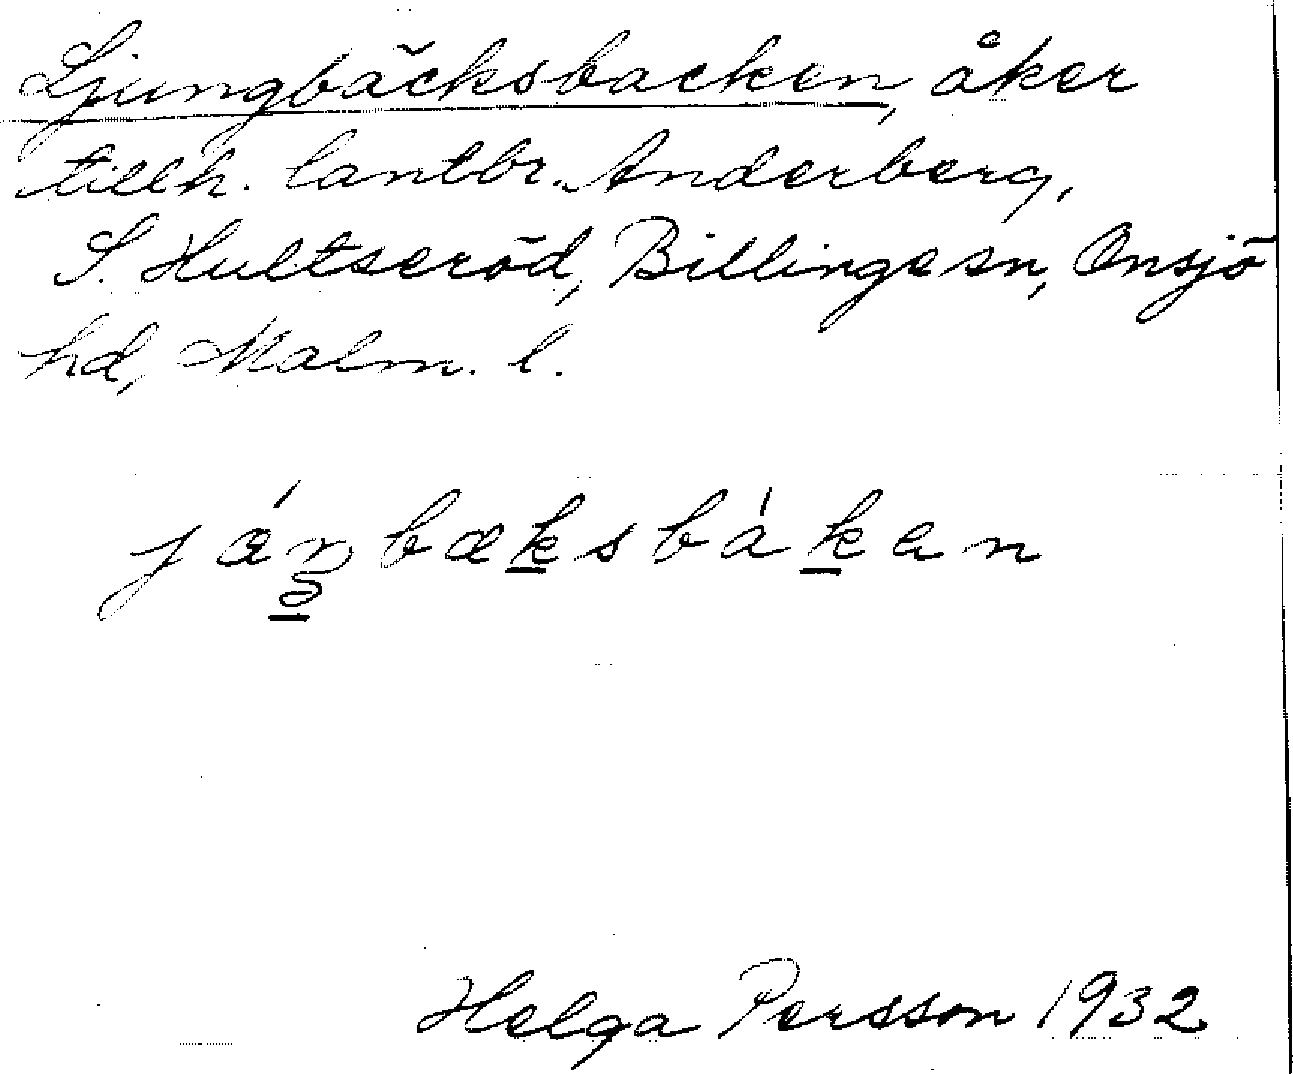 Ljungbäcksbacken, åker
tillh. lantbr. Anderberg,
S. Hultseröd, Billinge sn, Onsjö
hd, Malm. l.
jǽŋbæksbákan
Helga Persson 1932